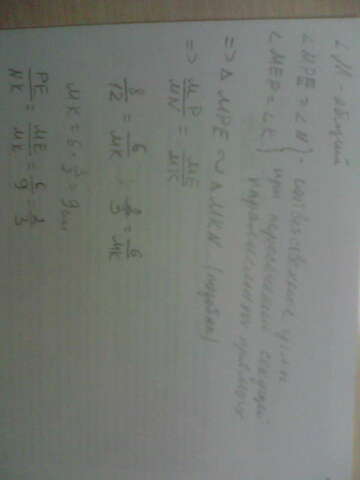 ∠M - общий
∠MPE = ∠N } - соответственные углы
∠MEP = ∠K } при пересечении секущей
параллельных прямых
=> △MPE ~ △MKN (подобны)
=> MP/MN = ME/MK
8/12 = 6/MK 2/3 = 6/MK
MK = 6 · 3/2 = 9 см
PE/NK = ME/MK = 6/9 = 2/3